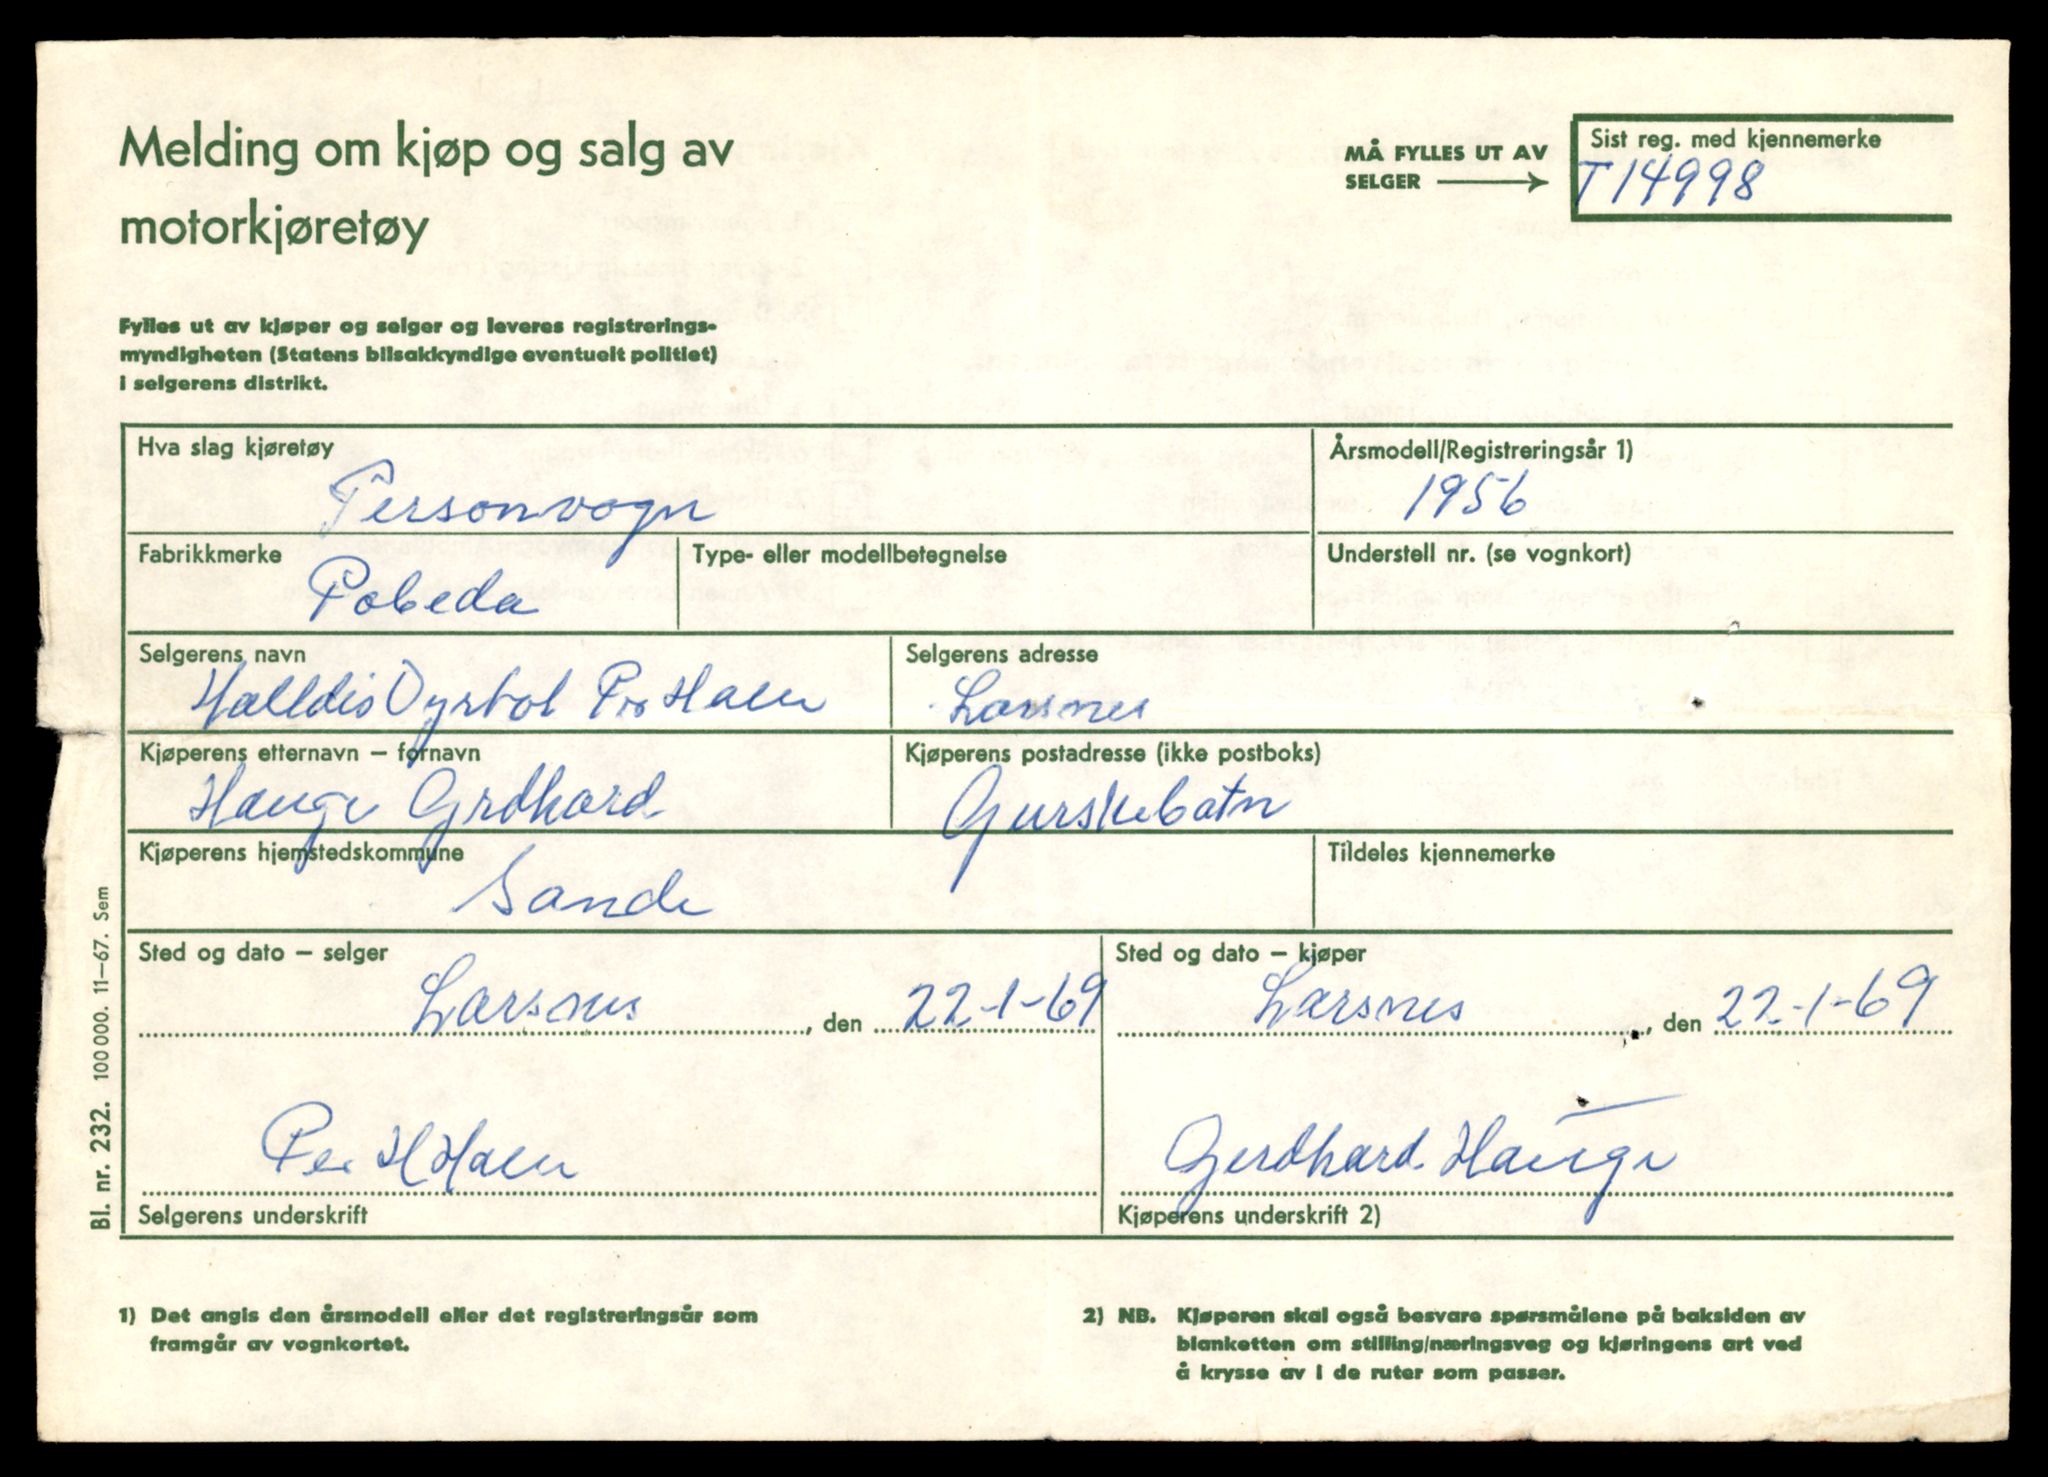 Melding om kjøp og salg av
motorkjøretøy
MÅ FYLLES UT AV
SELGER
Sist reg. med kjennemerke
T 14998
Fylles ut av kjøper og selger og leveres registrerings-
myndigheten (Statens bilsakkyndige eventuelt politiet)
i selgerens distrikt.
Hva slag kjøretøy
Personvogn
Årsmodell/Registreringsår 1)
1956
Fabrikkmerke
Pobeda
Type- eller modellbetegnelse
Understell nr. (se vognkort)
Selgerens navn
Halldis Dyrhol
Selgerens adresse
Larsnes
Kjøperens etternavn – fornavn
Hauge Gerdhard
Kjøperens postadresse (ikke postboks)
Gurskebotn
Kjøperens hjemstedskommune
Sande
Tildeles kjennemerke
Sted og dato – selger
Larsnes, den 22-1-69
Sted og dato – kjøper
Larsnes, den 22-1-69
Per H
Selgerens underskrift
Gerdhard Hauge
Kjøperens underskrift 2)
Bl. nr. 232. 100 000. 11–67. Sem
1) Det angis den årsmodell eller det registreringsår som
framgår av vognkortet.
2) NB. Kjøperen skal også besvare spørsmålene på baksiden av
blanketten om stilling/næringsveg og kjøringens art ved
å krysse av i de ruter som passer.